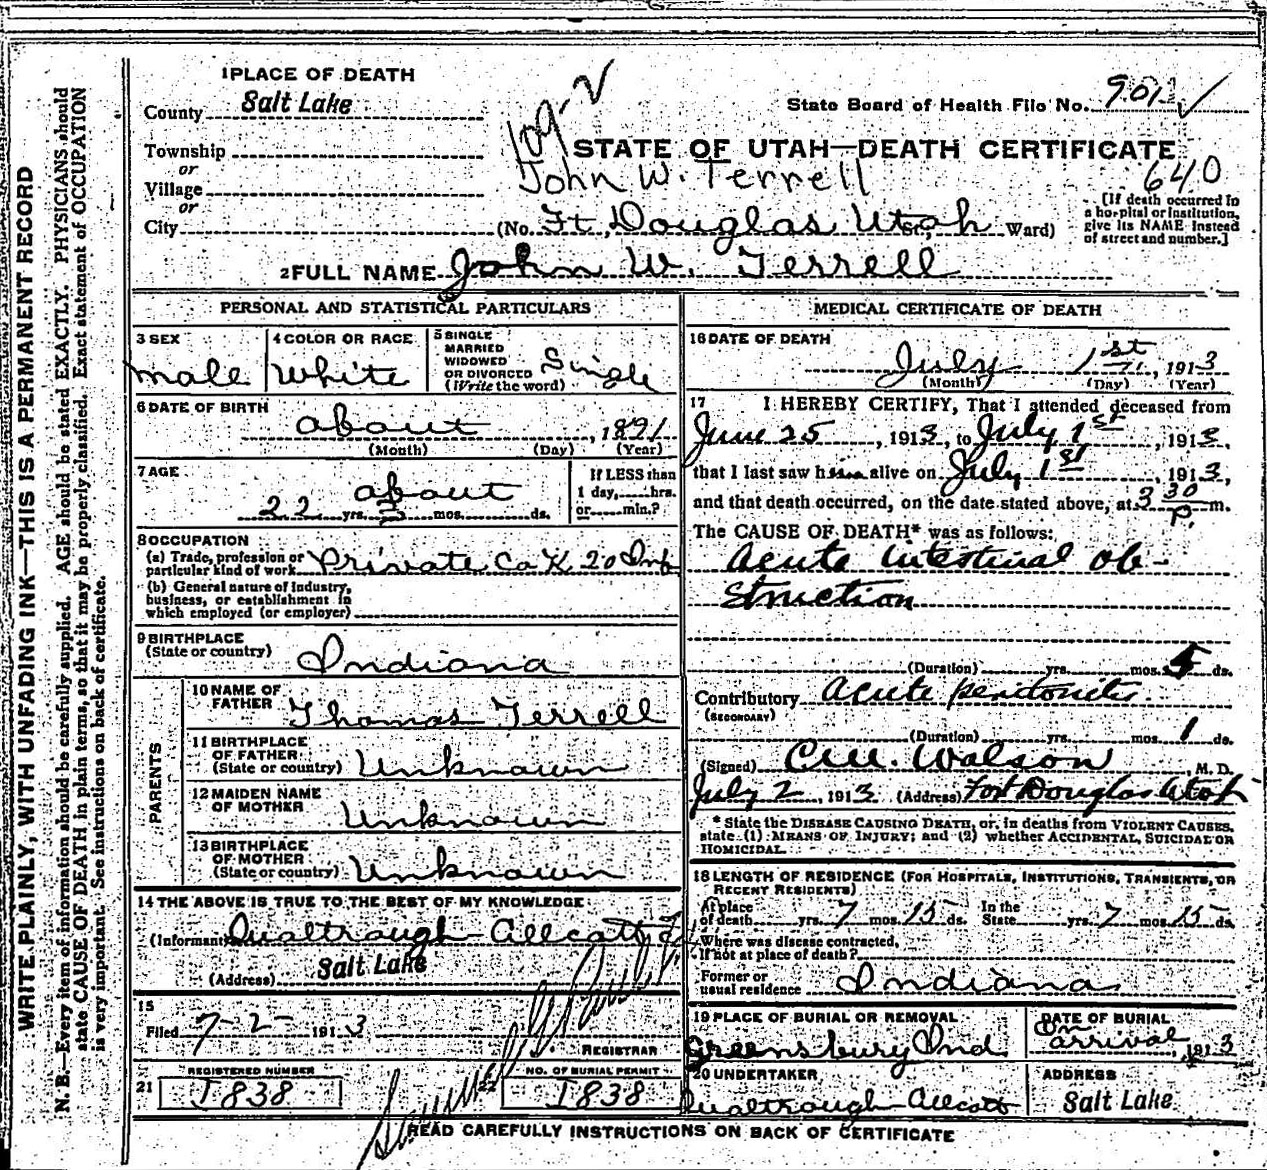 WRITE PLAINLY, WITH UNFADING INK—THIS IS A PERMANENT RECORD
N. B.—Every item of information should be carefully supplied. AGE should be stated EXACTLY. PHYSICIANS should
state CAUSE OF DEATH in plain terms, so that it may be properly classified. Exact statement of OCCUPATION
is very important. See instructions on back of certificate.
1 PLACE OF DEATH
County Salt Lake
Township
or
Village
or
City
109-2
State Board of Health File No. 901
STATE OF UTAH—DEATH CERTIFICATE
John W. Terrell
640
(No. Ft. Douglas Utah St., Ward)
[If death occurred in
a hospital or institution,
give its NAME instead
of street and number.]
2 FULL NAME John W. Terrell
PERSONAL AND STATISTICAL PARTICULARS
3 SEX
male
4 COLOR OR RACE
White
5 SINGLE
MARRIED
WIDOWED
OR DIVORCED
(Write the word)
Single
6 DATE OF BIRTH
about, 1891
(Month) (Day) (Year)
7 AGE
about
22 yrs. mos. ds.
If LESS than
1 day, hrs.
or min.?
8 OCCUPATION
(a) Trade, profession or
particular kind of work Private Co K 20 Inf
(b) General nature of industry,
business, or establishment in
which employed (or employer)
9 BIRTHPLACE
(State or country) Indiana
PARENTS
10 NAME OF
FATHER Thomas Terrell
11 BIRTHPLACE
OF FATHER
(State or country) Unknown
12 MAIDEN NAME
OF MOTHER Unknown
13 BIRTHPLACE
OF MOTHER
(State or country) Unknown
14 THE ABOVE IS TRUE TO THE BEST OF MY KNOWLEDGE
(Informant) Qualtrough Allcott
(Address) Salt Lake
15
Filed 7-2- 1913
REGISTRAR
21 REGISTERED NUMBER
J838
22 NO. OF BURIAL PERMIT
J838
MEDICAL CERTIFICATE OF DEATH
16 DATE OF DEATH
July 1st, 1913
(Month) (Day) (Year)
17 I HEREBY CERTIFY, That I attended deceased from
June 25, 1913, to July 1st, 1913,
that I last saw him alive on July 1st, 1913,
and that death occurred, on the date stated above, at 3 30 P. m.
The CAUSE OF DEATH* was as follows:
Acute intestinal ob-
struction
(Duration) yrs. mos. 5 ds.
Contributory Acute peritonitis
(SECONDARY)
(Duration) yrs. mos. 1 ds.
(Signed) Walson, M. D.
July 2, 1913 (Address) Fort Douglas Utah
* State the DISEASE CAUSING DEATH, or, in deaths from VIOLENT CAUSES,
state (1) MEANS OF INJURY; and (2) whether ACCIDENTAL, SUICIDAL OR
HOMICIDAL.
18 LENGTH OF RESIDENCE (FOR HOSPITALS, INSTITUTIONS, TRANSIENTS, OR
RECENT RESIDENTS)
At place
of death yrs. 7 mos. 15 ds. In the
State yrs. 7 mos. 15 ds.
Where was disease contracted,
If not at place of death?
Former or
usual residence Indiana
19 PLACE OF BURIAL OR REMOVAL
Greensburg Ind
DATE OF BURIAL
On
arrival, 1913
20 UNDERTAKER
Qualtrough Allcott
ADDRESS
Salt Lake
READ CAREFULLY INSTRUCTIONS ON BACK OF CERTIFICATE